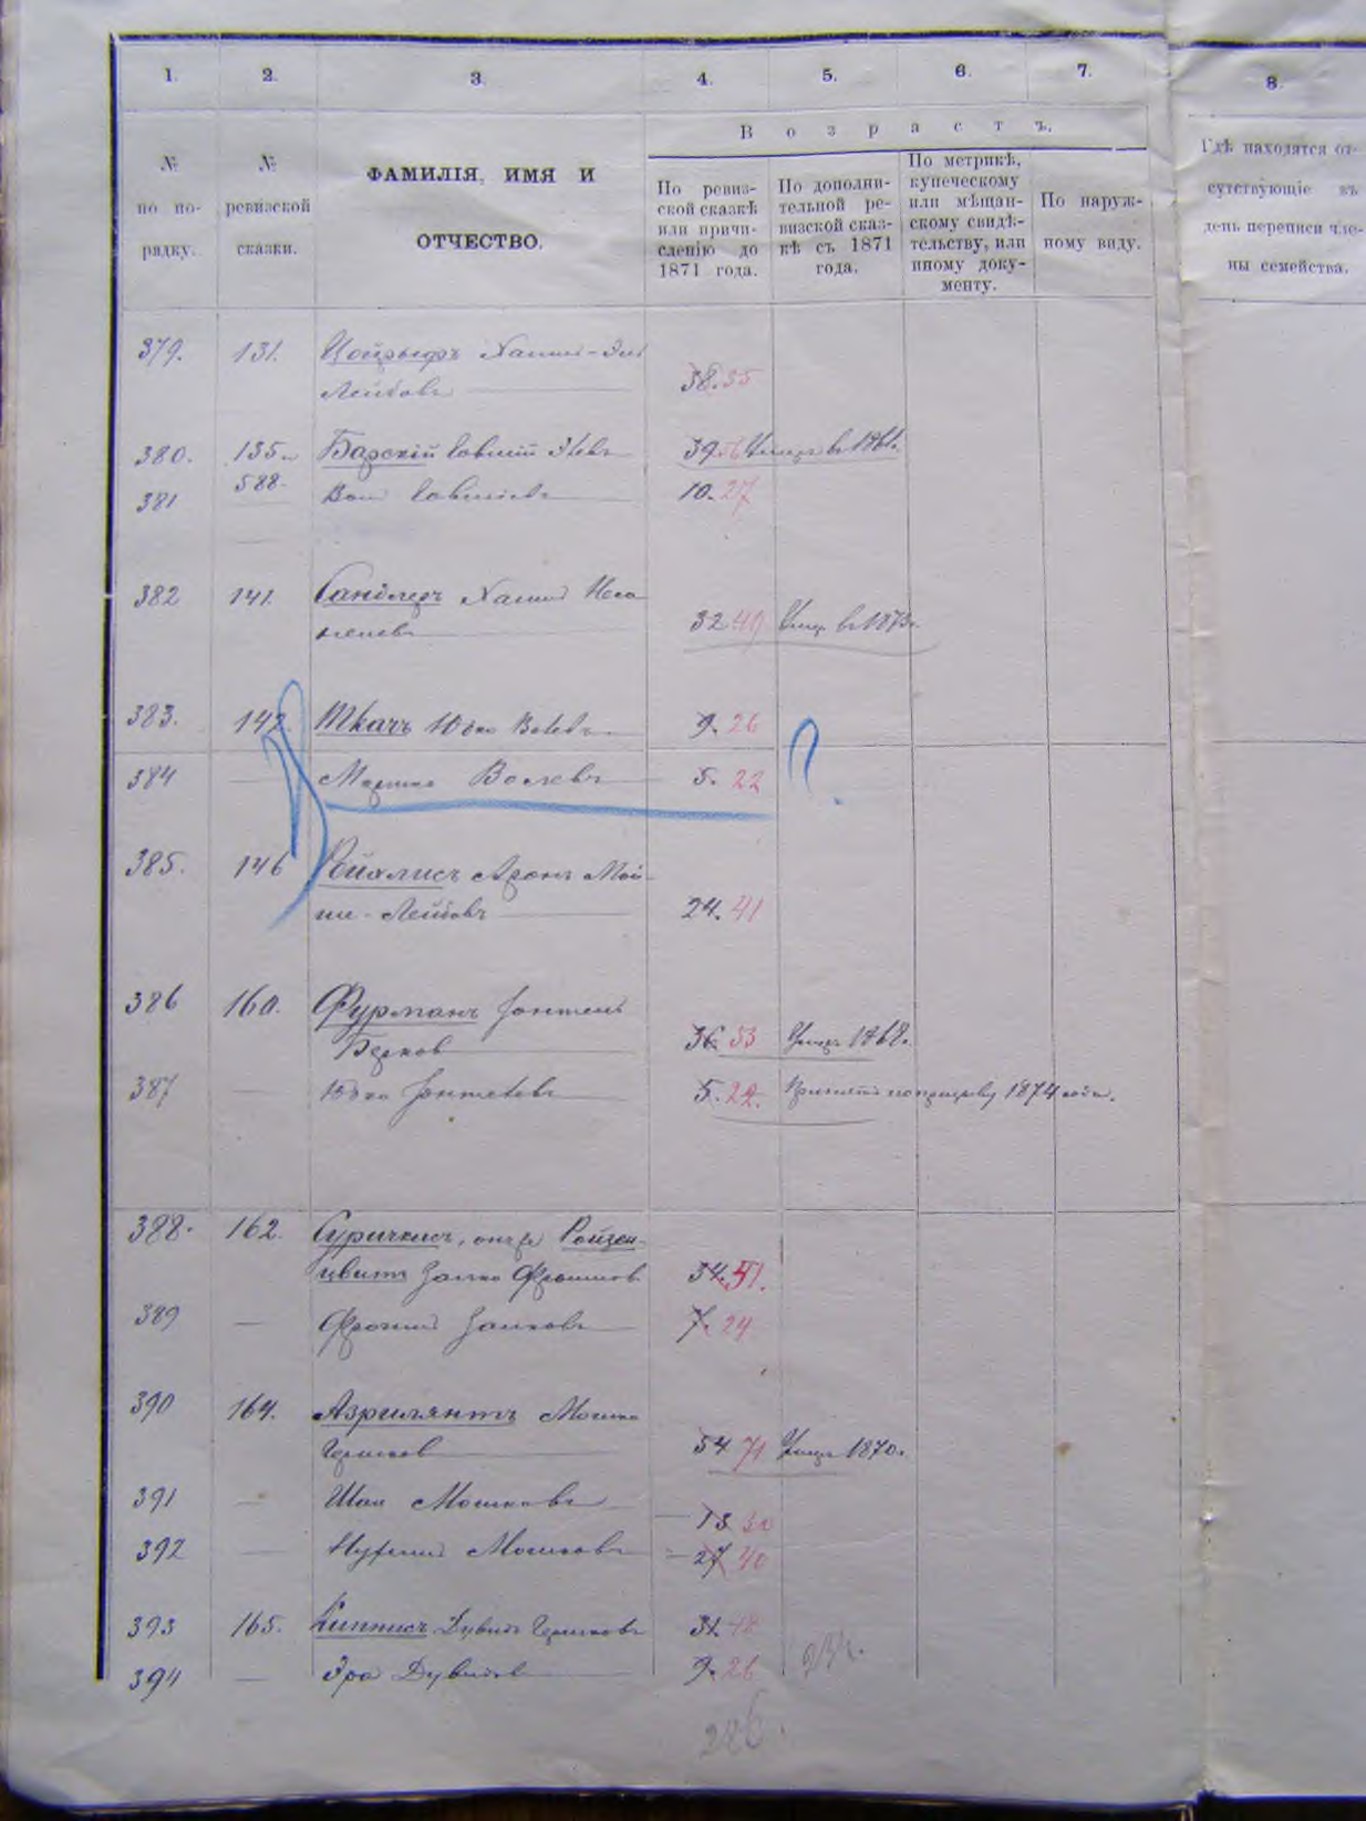 1. 2. 3. 4. 5. 6. 7. 8.
Возрастъ.
№
по по-
рядку.
№
ревизской
сказки.
ФАМИЛІЯ, ИМЯ И
ОТЧЕСТВО.
По ревиз-
ской сказкѣ
или причи-
сленію до
1871 года.
По дополни-
тельной ре-
визской сказ-
кѣ съ 1871
года.
По метрикѣ,
купеческому
или мѣщан-
скому свидѣ-
тельству, или
иному доку-
менту.
По наруж-
ному виду.
Гдѣ находятся от-
сутствующіе въ
день переписи чле-
ны семейства.
379. 131.
Лейбовъ 38. 35
380. 135 Барскій 39 56 Умеръ въ 1861.
588.
381 10. 27
382 141. Сандлеръ Хаимъ
32 49 Умер. въ 1873.
383. 142. Ткачъ Юдко Волевъ 9. 26
384 — Мошко Волевъ 5. 22 ?
385. 146 Аронъ Мой-
ше-Лейбовъ 24. 41
386 160. Фурманъ
Берков 36 53 Умеръ 1868.
387 — Юдко 5. 22. Принятъ по призыву 1874 года.
388. 162. Суричкисъ, онъ же Ройзен-
цвитъ Фроимов 34. 51.
389 — Фроимъ 7. 24
390 164. Азрилянтъ Мошко
Гершков 54 71 Умеръ 1870.
391 — Мошковъ 13 30
392 — Мошковъ 27 40
393 165. Дувидъ Гершковъ 31. 48
394 — Дувидов 9. 26
226.